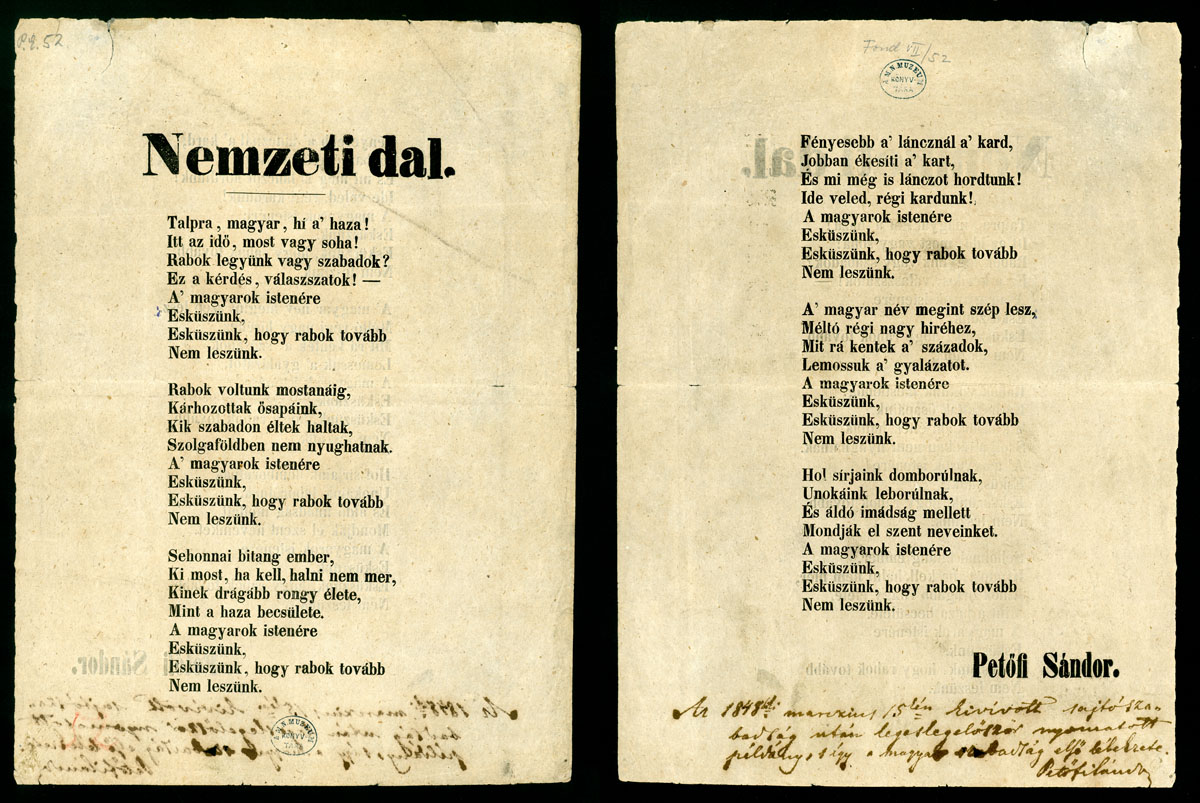 P.q. 52
Nemzeti dal.
Talpra, magyar, hí a’ haza!
Itt az idő, most vagy soha!
Rabok legyünk vagy szabadok?
Ez a kérdés, válaszszatok! —
A’ magyarok istenére
Esküszünk,
Esküszünk, hogy rabok tovább
Nem leszünk.
Rabok voltunk mostanáig,
Kárhozottak ősapáink,
Kik szabadon éltek haltak,
Szolgaföldben nem nyughatnak.
A’ magyarok istenére
Esküszünk,
Esküszünk, hogy rabok tovább
Nem leszünk.
Sehonnai bitang ember,
Ki most, ha kell, halni nem mer,
Kinek drágább rongy élete,
Mint a haza becsülete.
A magyarok istenére
Esküszünk,
Esküszünk, hogy rabok tovább
Nem leszünk.
M. N. MUZEUM
KÖNYV-
TÁRA
Fond VII/52
M. N. MUZEUM
KÖNYV-
TÁRA
Fényesebb a’ láncznál a’ kard,
Jobban ékesíti a’ kart,
És mi még is lánczot hordtunk!
Ide veled, régi kardunk!
A magyarok istenére
Esküszünk,
Esküszünk, hogy rabok tovább
Nem leszünk.
A’ magyar név megint szép lesz,
Méltó régi nagy hiréhez,
Mit rá kentek a’ századok,
Lemossuk a’ gyalázatot.
A magyarok istenére
Esküszünk,
Esküszünk, hogy rabok tovább
Nem leszünk.
Hol sírjaink domborúlnak,
Unokáink leborúlnak,
És áldó imádság mellett
Mondják el szent neveinket.
A magyarok istenére
Esküszünk,
Esküszünk, hogy rabok tovább
Nem leszünk.
Petőfi Sándor.
Az 1848diki marczius 15kén kivivott sajtósza-
badság után legeslegelőször nyomatott
példány, s így a magyar szabadság első lélekzete.
Petőfi Sándor